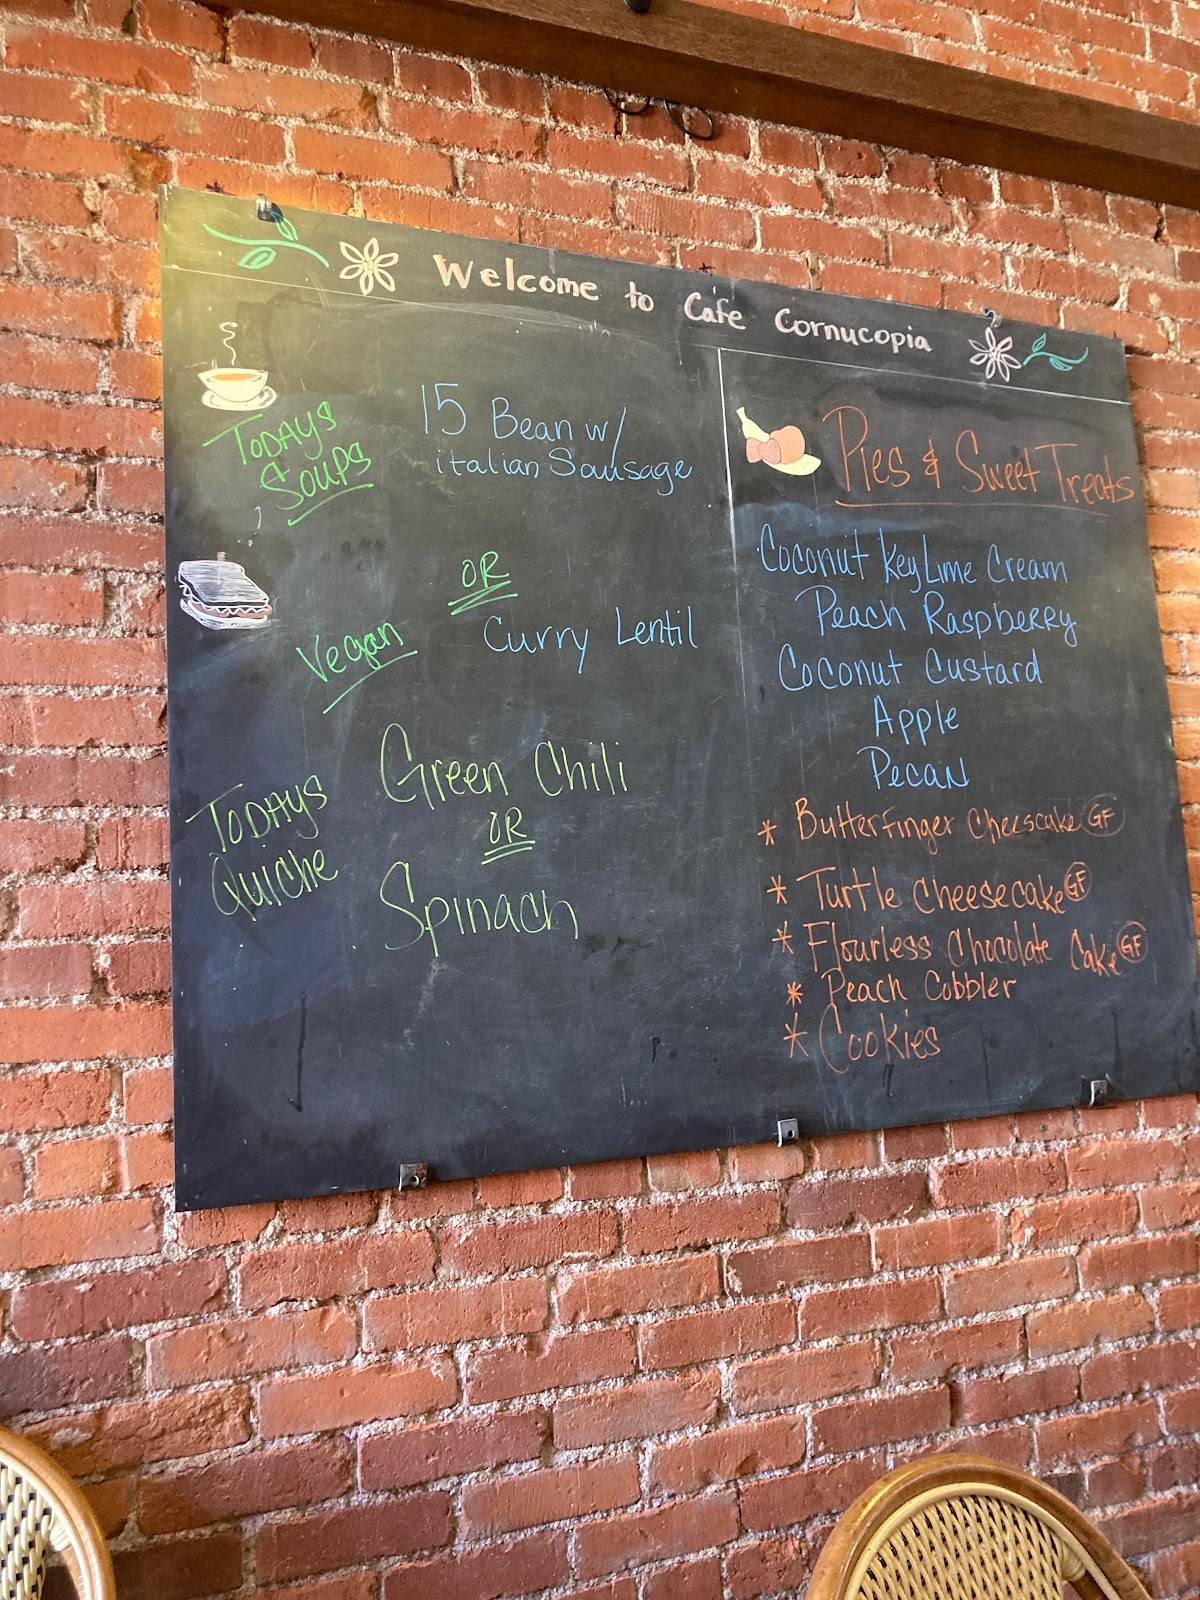 Welcome to Cafe Cornucopia
TODAYS
SOUPS
15 Bean w/
italian Sausage
OR
Vegan
Curry Lentil
TODAYS
QUiche
Green Chili
OR
Spinach
Pies & Sweet Treats
Coconut Key Lime Cream
Peach Raspberry
Coconut Custard
Apple
Pecan
* Butterfinger Cheescake GF
* Turtle Cheesecake GF
* Flourless Chocolate Cake GF
* Peach Cobbler
* Cookies